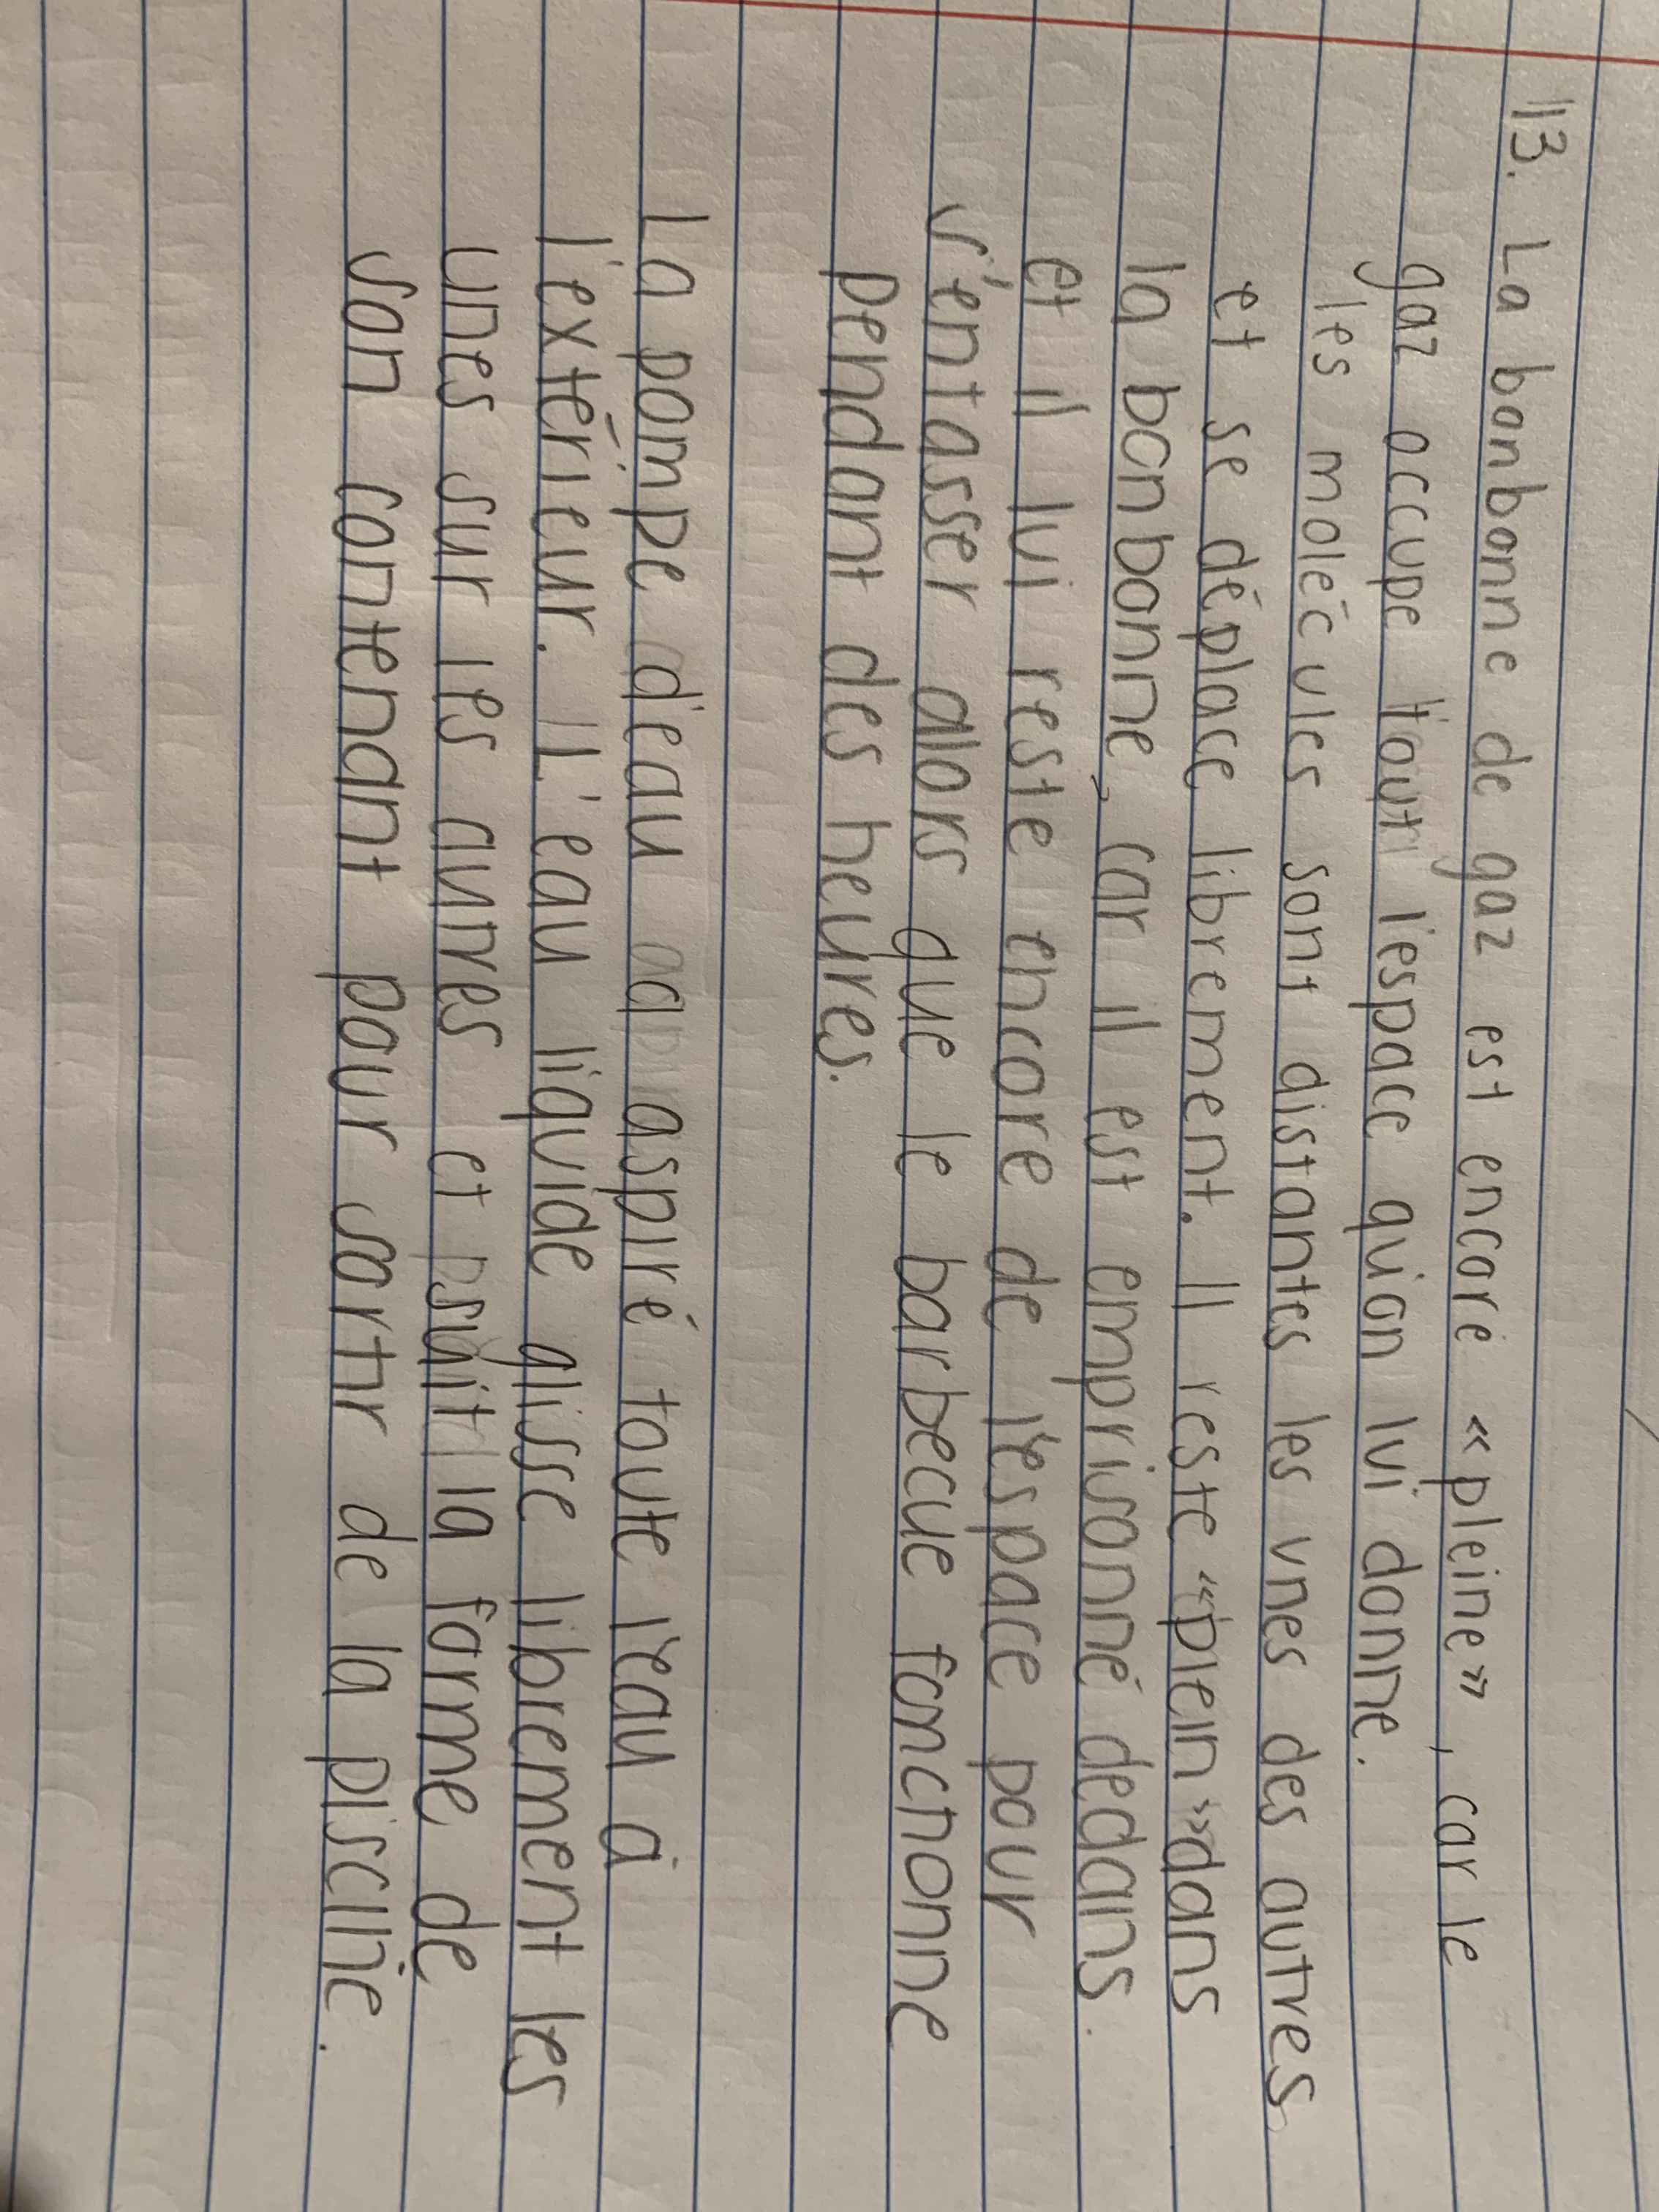 13. La bonbonne de gaz est encore « pleine » , car le
gaz occupe tout l'espace qu'on lui donne.
les molécules sont distantes les unes des autres
et se déplace librement. Il reste « plein » dans
la bonbonne, car il est emprisonné dedans
et il lui reste encore de l'espace pour
s'entasser alors que le barbecue fonctionne
pendant des heures.
La pompe d'eau aspiré toute l'eau à
l'extérieur. L'eau liquide glisse librement les
unes sur les autres et suit la forme de
son contenant pour sortir de la piscine.